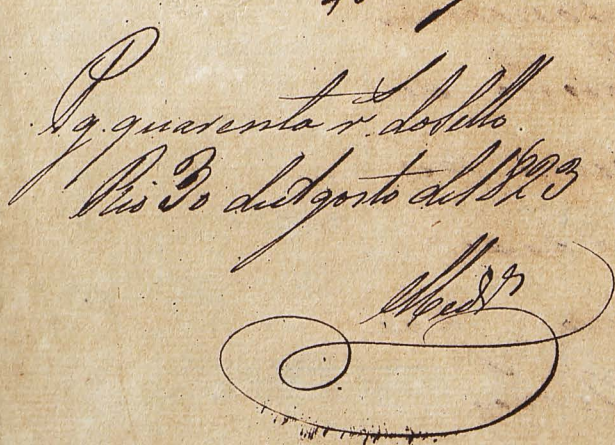 Pg. quarenta r.s do Sello.
Rio 30 de Agosto de 1823